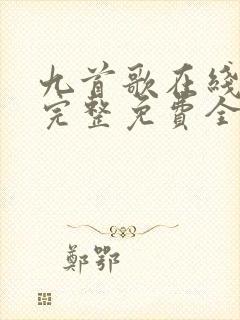 九首歌在线
完整免費全
鄭鄂